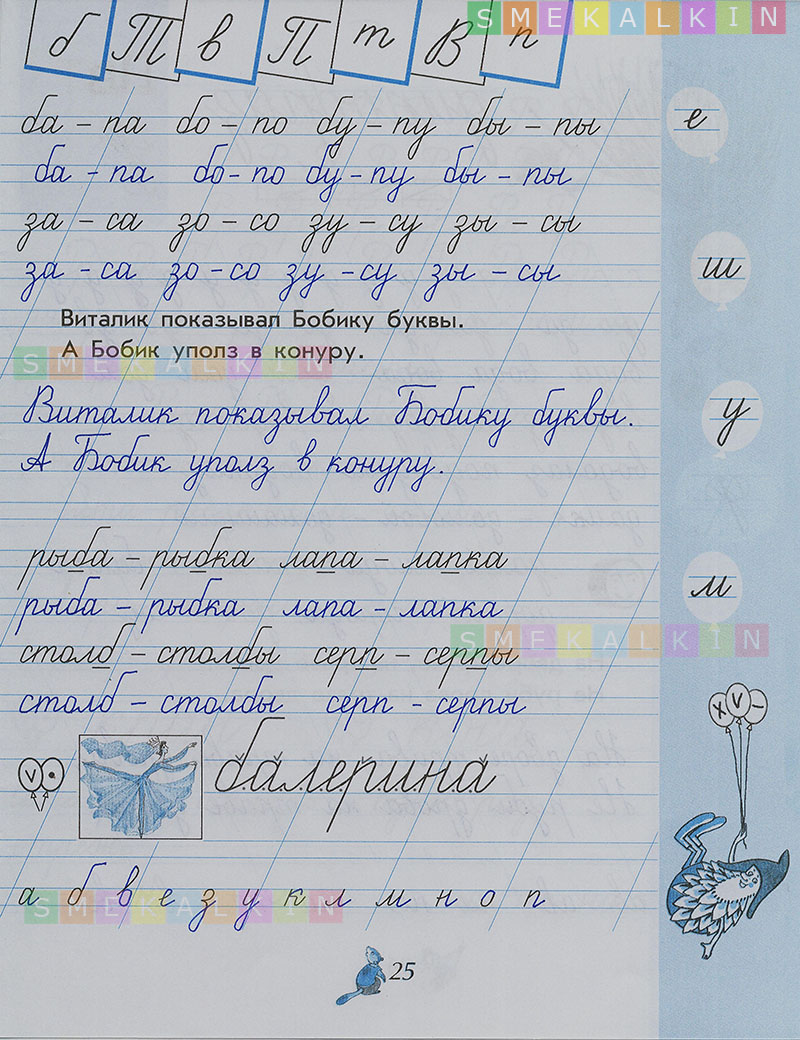 SMEKALKIN
б Т в П т В п
ба – па бо – по бу – пу бы – пы
е
ба – па бо – по бу – пу бы – пы
за – са зо – со зу – су зы – сы
за – са зо – со зу – су зы – сы
ш
Виталик показывал Бобику буквы.
А Бобик уполз в конуру.
SMEKALKIN
Виталик показывал Бобику буквы.
у
А Бобик уполз в конуру.
рыба – рыбка лапа – лапка
м
рыба – рыбка лапа – лапка
SMEKALKIN
столб – столбы серп – серпы
столб – столбы серп – серпы
х v –
v •
балерина
а б в е з у к л м н о п
SMEKALKIN
25